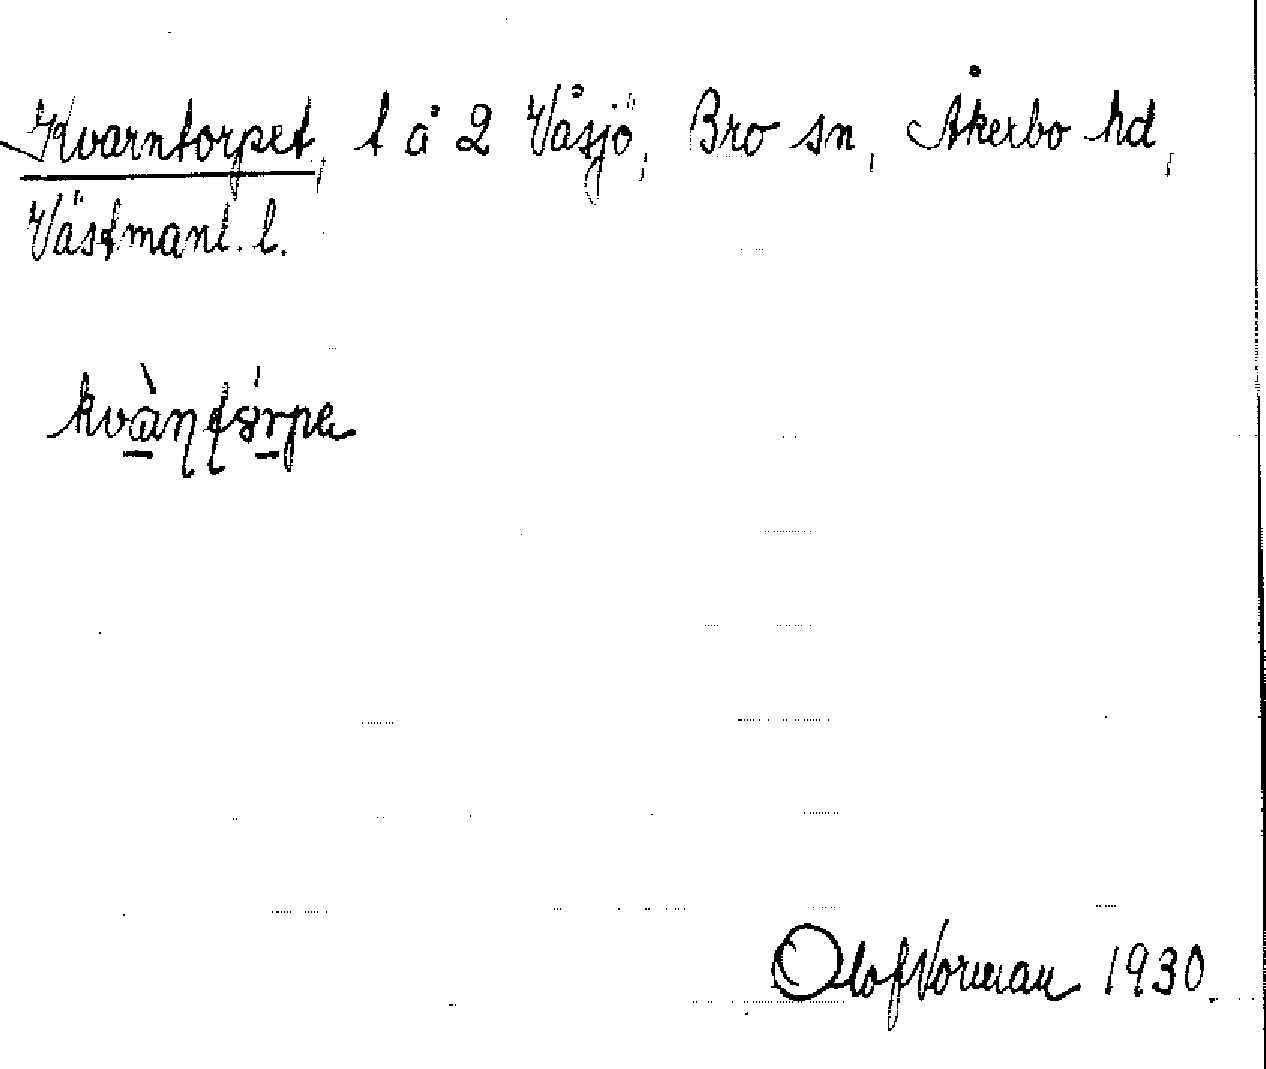 Kvarntorpet, t å 2 Våsjö, Bro sn, Åkerbo hd,
Västmanl. l.
Olof Norman 1930.